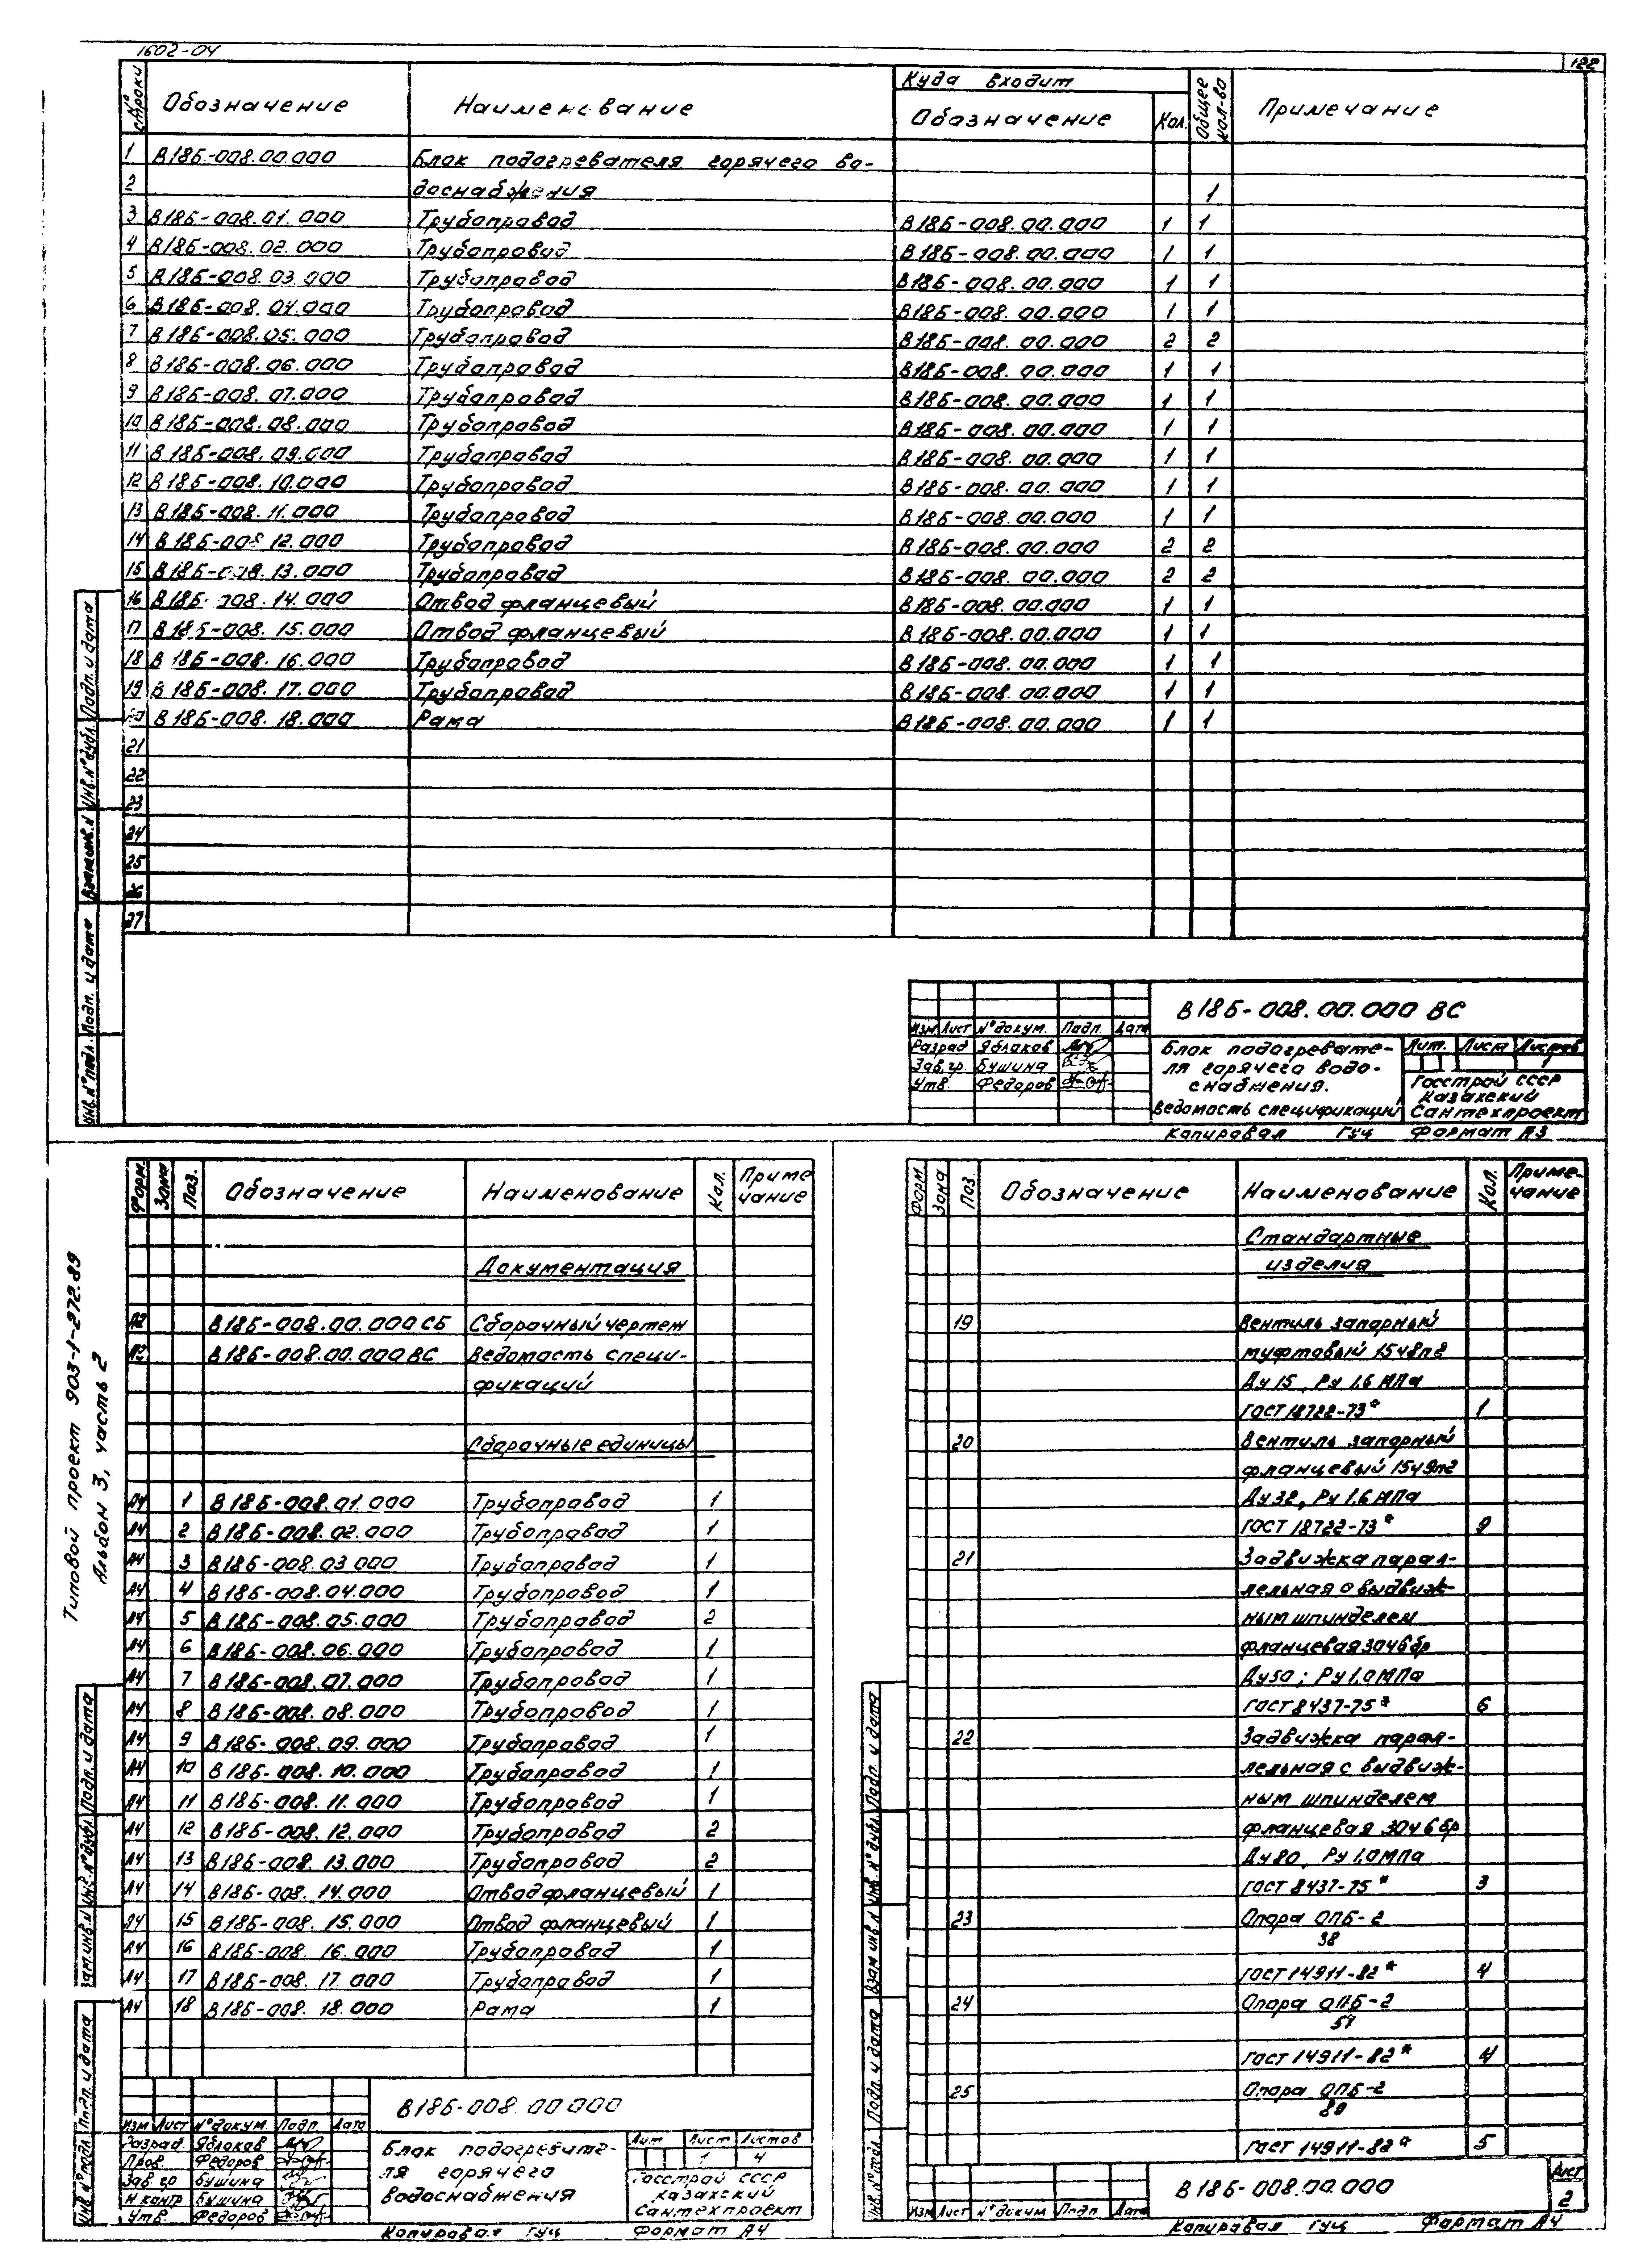 1602-04
122
№ строки Обозначение Наименование Куда входит Общее кол-во Примечание
Обозначение Кол.
1 В18Б-008.00.000 Блок подогревателя горячего во-
2 доснабжения 1
3 В18Б-008.01.000 Трубопровод В18Б-008.00.000 1 1
4 В18Б-008.02.000 Трубопровод В18Б-008.00.000 1 1
5 В18Б-008.03.000 Трубопровод В18Б-008.00.000 1 1
6 В18Б-008.04.000 Трубопровод В18Б-008.00.000 1 1
7 В18Б-008.05.000 Трубопровод В18Б-008.00.000 2 2
8 В18Б-008.06.000 Трубопровод В18Б-008.00.000 1 1
9 В18Б-008.07.000 Трубопровод В18Б-008.00.000 1 1
10 В18Б-008.08.000 Трубопровод В18Б-008.00.000 1 1
11 В18Б-008.09.000 Трубопровод В18Б-008.00.000 1 1
12 В18Б-008.10.000 Трубопровод В18Б-008.00.000 1 1
13 В18Б-008.11.000 Трубопровод В18Б-008.00.000 1 1
14 В18Б-008.12.000 Трубопровод В18Б-008.00.000 2 2
15 В18Б-008.13.000 Трубопровод В18Б-008.00.000 2 2
16 В18Б-008.14.000 Отвод фланцевый В18Б-008.00.000 1 1
17 В18Б-008.15.000 Отвод фланцевый В18Б-008.00.000 1 1
18 В18Б-008.16.000 Трубопровод В18Б-008.00.000 1 1
19 В18Б-008.17.000 Трубопровод В18Б-008.00.000 1 1
20 В18Б-008.18.000 Рама В18Б-008.00.000 1 1
21
22
23
24
25
26
27
Инв.№ подл. Подп. и дата Взам.инв.№ Инв.№ дубл. Подп. и дата
В18Б-008.00.000 ВС
Изм Лист № докум. Подп. Дата
Разраб Яблоков
Зав.гр. Бушина
Утв Федоров
Блок подогревате-
ля горячего водо-
снабжения.
Ведомость спецификаций
Лит. Лист Листов
1
Госстрой СССР
Казахский
Сантехпроект
Копировал Гуц Формат А3
Типовой проект 903-1-272.89
Альбом 3, часть 2
Форм. Зона Поз. Обозначение Наименование Кол. Приме-
чание
Документация
А2 В18Б-008.00.000СБ Сборочный чертеж
А3 В18Б-008.00.000ВС Ведомость специ-
фикаций
Сборочные единицы
А4 1 В18Б-008.01.000 Трубопровод 1
А4 2 В18Б-008.02.000 Трубопровод 1
А4 3 В18Б-008.03.000 Трубопровод 1
А4 4 В18Б-008.04.000 Трубопровод 1
А4 5 В18Б-008.05.000 Трубопровод 2
А4 6 В18Б-008.06.000 Трубопровод 1
А4 7 В18Б-008.07.000 Трубопровод 1
А4 8 В18Б-008.08.000 Трубопровод 1
А4 9 В18Б-008.09.000 Трубопровод 1
А4 10 В18Б-008.10.000 Трубопровод 1
А4 11 В18Б-008.11.000 Трубопровод 1
А4 12 В18Б-008.12.000 Трубопровод 2
А4 13 В18Б-008.13.000 Трубопровод 2
А4 14 В18Б-008.14.000 Отвод фланцевый 1
А4 15 В18Б-008.15.000 Отвод фланцевый 1
А4 16 В18Б-008.16.000 Трубопровод 1
А4 17 В18Б-008.17.000 Трубопровод 1
А4 18 В18Б-008.18.000 Рама 1
Инв.№ подл. Подп. и дата Взам.инв.№ Инв.№ дубл. Подп. и дата
В18Б-008.00.000
Изм Лист № докум. Подп. Дата
Разраб. Яблоков
Пров Федоров
Зав.гр Бушина
Н.контр Бушина
Утв Федоров
Блок подогревате-
ля горячего
водоснабжения
Лит Лист Листов
1 4
Госстрой СССР
Казахский
Сантехпроект
Копировал Гуц Формат А4
Форм Зона Поз. Обозначение Наименование Кол. Приме-
чание
Стандартные
изделия
19 Вентиль запорный
муфтовый 15ч8п2
Ду 15, Ру 1.6 МПа
ГОСТ 18722-73* 1
20 Вентиль запорный
фланцевый 15ч9п2
Ду 32, Ру 1.6 МПа
ГОСТ 18722-73* 9
21 Задвижка парал-
лельная с выдвиж-
ным шпинделем
фланцевая 30ч6бр
Ду50; Ру 1.0 МПа
ГОСТ 8437-75* 6
22 Задвижка парал-
лельная с выдвиж-
ным шпинделем
фланцевая 30ч6бр
Ду80, Ру 1,0МПа
ГОСТ 8437-75* 3
23 Опора ОПБ-2
38
ГОСТ 14911-82* 4
24 Опора ОПБ-2
57
ГОСТ 14911-82* 4
25 Опора ОПБ-2
89
ГОСТ 14911-82* 5
Инв.№ подл. Подп. и дата Взам инв.№ Инв.№ дубл. Подп. и дата
Изм Лист № докум Подп Дата
В18Б-008.00.000
Лист
2
Копировал Гуц Формат А4